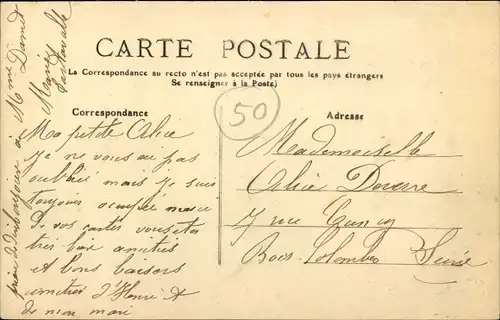 CARTE POSTALE
La Correspondance au recto n'est pas acceptée par tous les pays étrangers
Se renseigner à la Poste)
50
Correspondance
Ma petite Alice
Je ne vous au pas
oublié mais je suis
toujours occupée merci
de vos cartes vous etes
tres bien amitiés
et bons baisers
amities d'Henri &
de mon mari
Adresse
Mademoiselle
Alice
7 rue
Bois-Colombes Seine
à Mme Damet
Marie